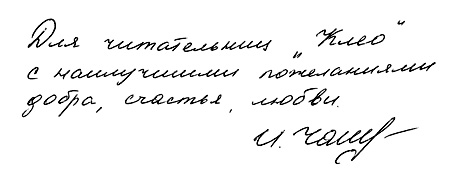 Для читательниц „Клео“
с наилучшими пожеланиями
добра, счастья, любви.
И.